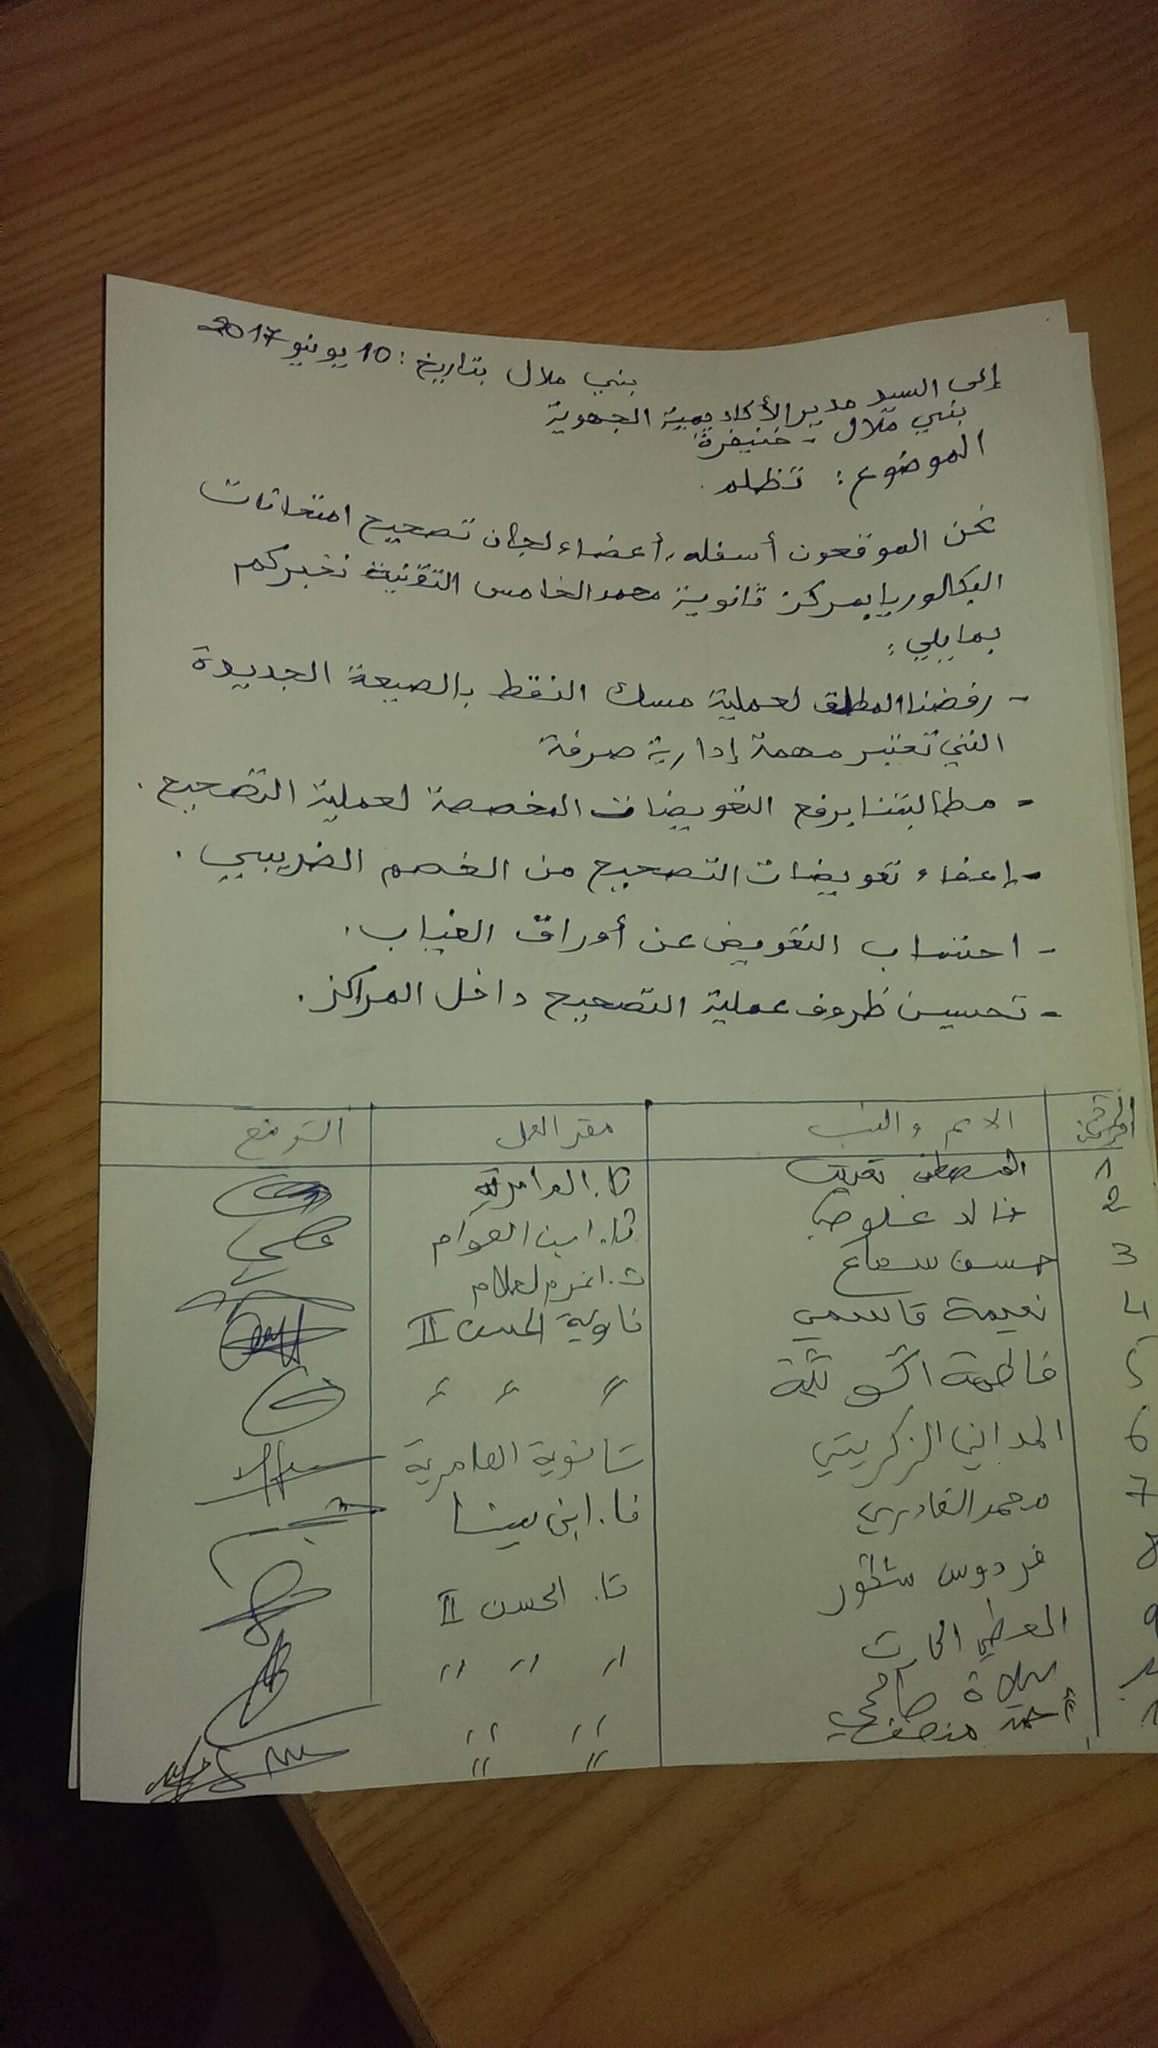 بني ملال بتاريخ: 10 يونيو 2017
إلى السيد مدير الأكاديمية الجهوية
بني ملال - خنيفرة
الموضوع: تظلم.
نحن الموقعون أسفله، أعضاء لجان تصحيح امتحانات
البكالوريا بمركز ثانوية محمد الخامس التقنية نخبركم
بمايلي:
- رفضنا المطلق لعملية مسك النقط بالصيغة الجديدة
التي تعتبر مهمة إدارية صرفة
- مطالبتنا برفع التعويضات المخصصة لعملية التصحيح.
- إعفاء تعويضات التصحيح من الخصم الضريبي.
- احتساب التعويض عن أوراق الغياب.
- تحسين ظروف عملية التصحيح داخل المراكز.
الاسم والنسب مقر العمل التوقيع
1 المصطفى ثا. العامرية
2 خالد ثا. ابن العوام
3 حسن سماع
4 نعيمة قاسمي ثانوية الحسن II
5 فاطمة " " "
6 المداني الزكريتي ثانوية العامرية
7 محمد القادري ثا. ابن سينا
8 فردوس ثا. الحسن II
9 المعطي " " "
صالحي " "
أحمد منصف " "